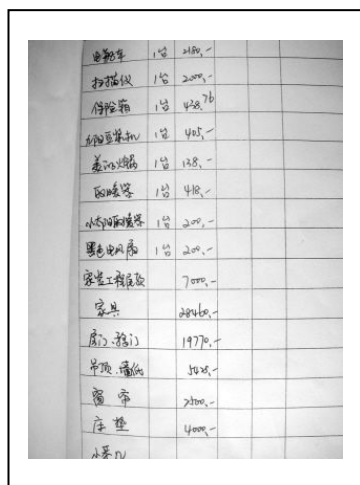 电瓶车 1台 2180,-
扫描仪 1台 2000,-
保险箱 1台 438.76
九阳豆浆机 1台 405,-
美的火锅 1台 138,-
取暖器 1台 418,-
小太阳取暖器 1台 200,-
黑色电风扇 1台 200,-
家装工程尾款 7000,-
家具 28460,-
房门、移门 19770,-
吊顶、墙纸 5428,-
窗帘 2500,-
床垫 4000,-